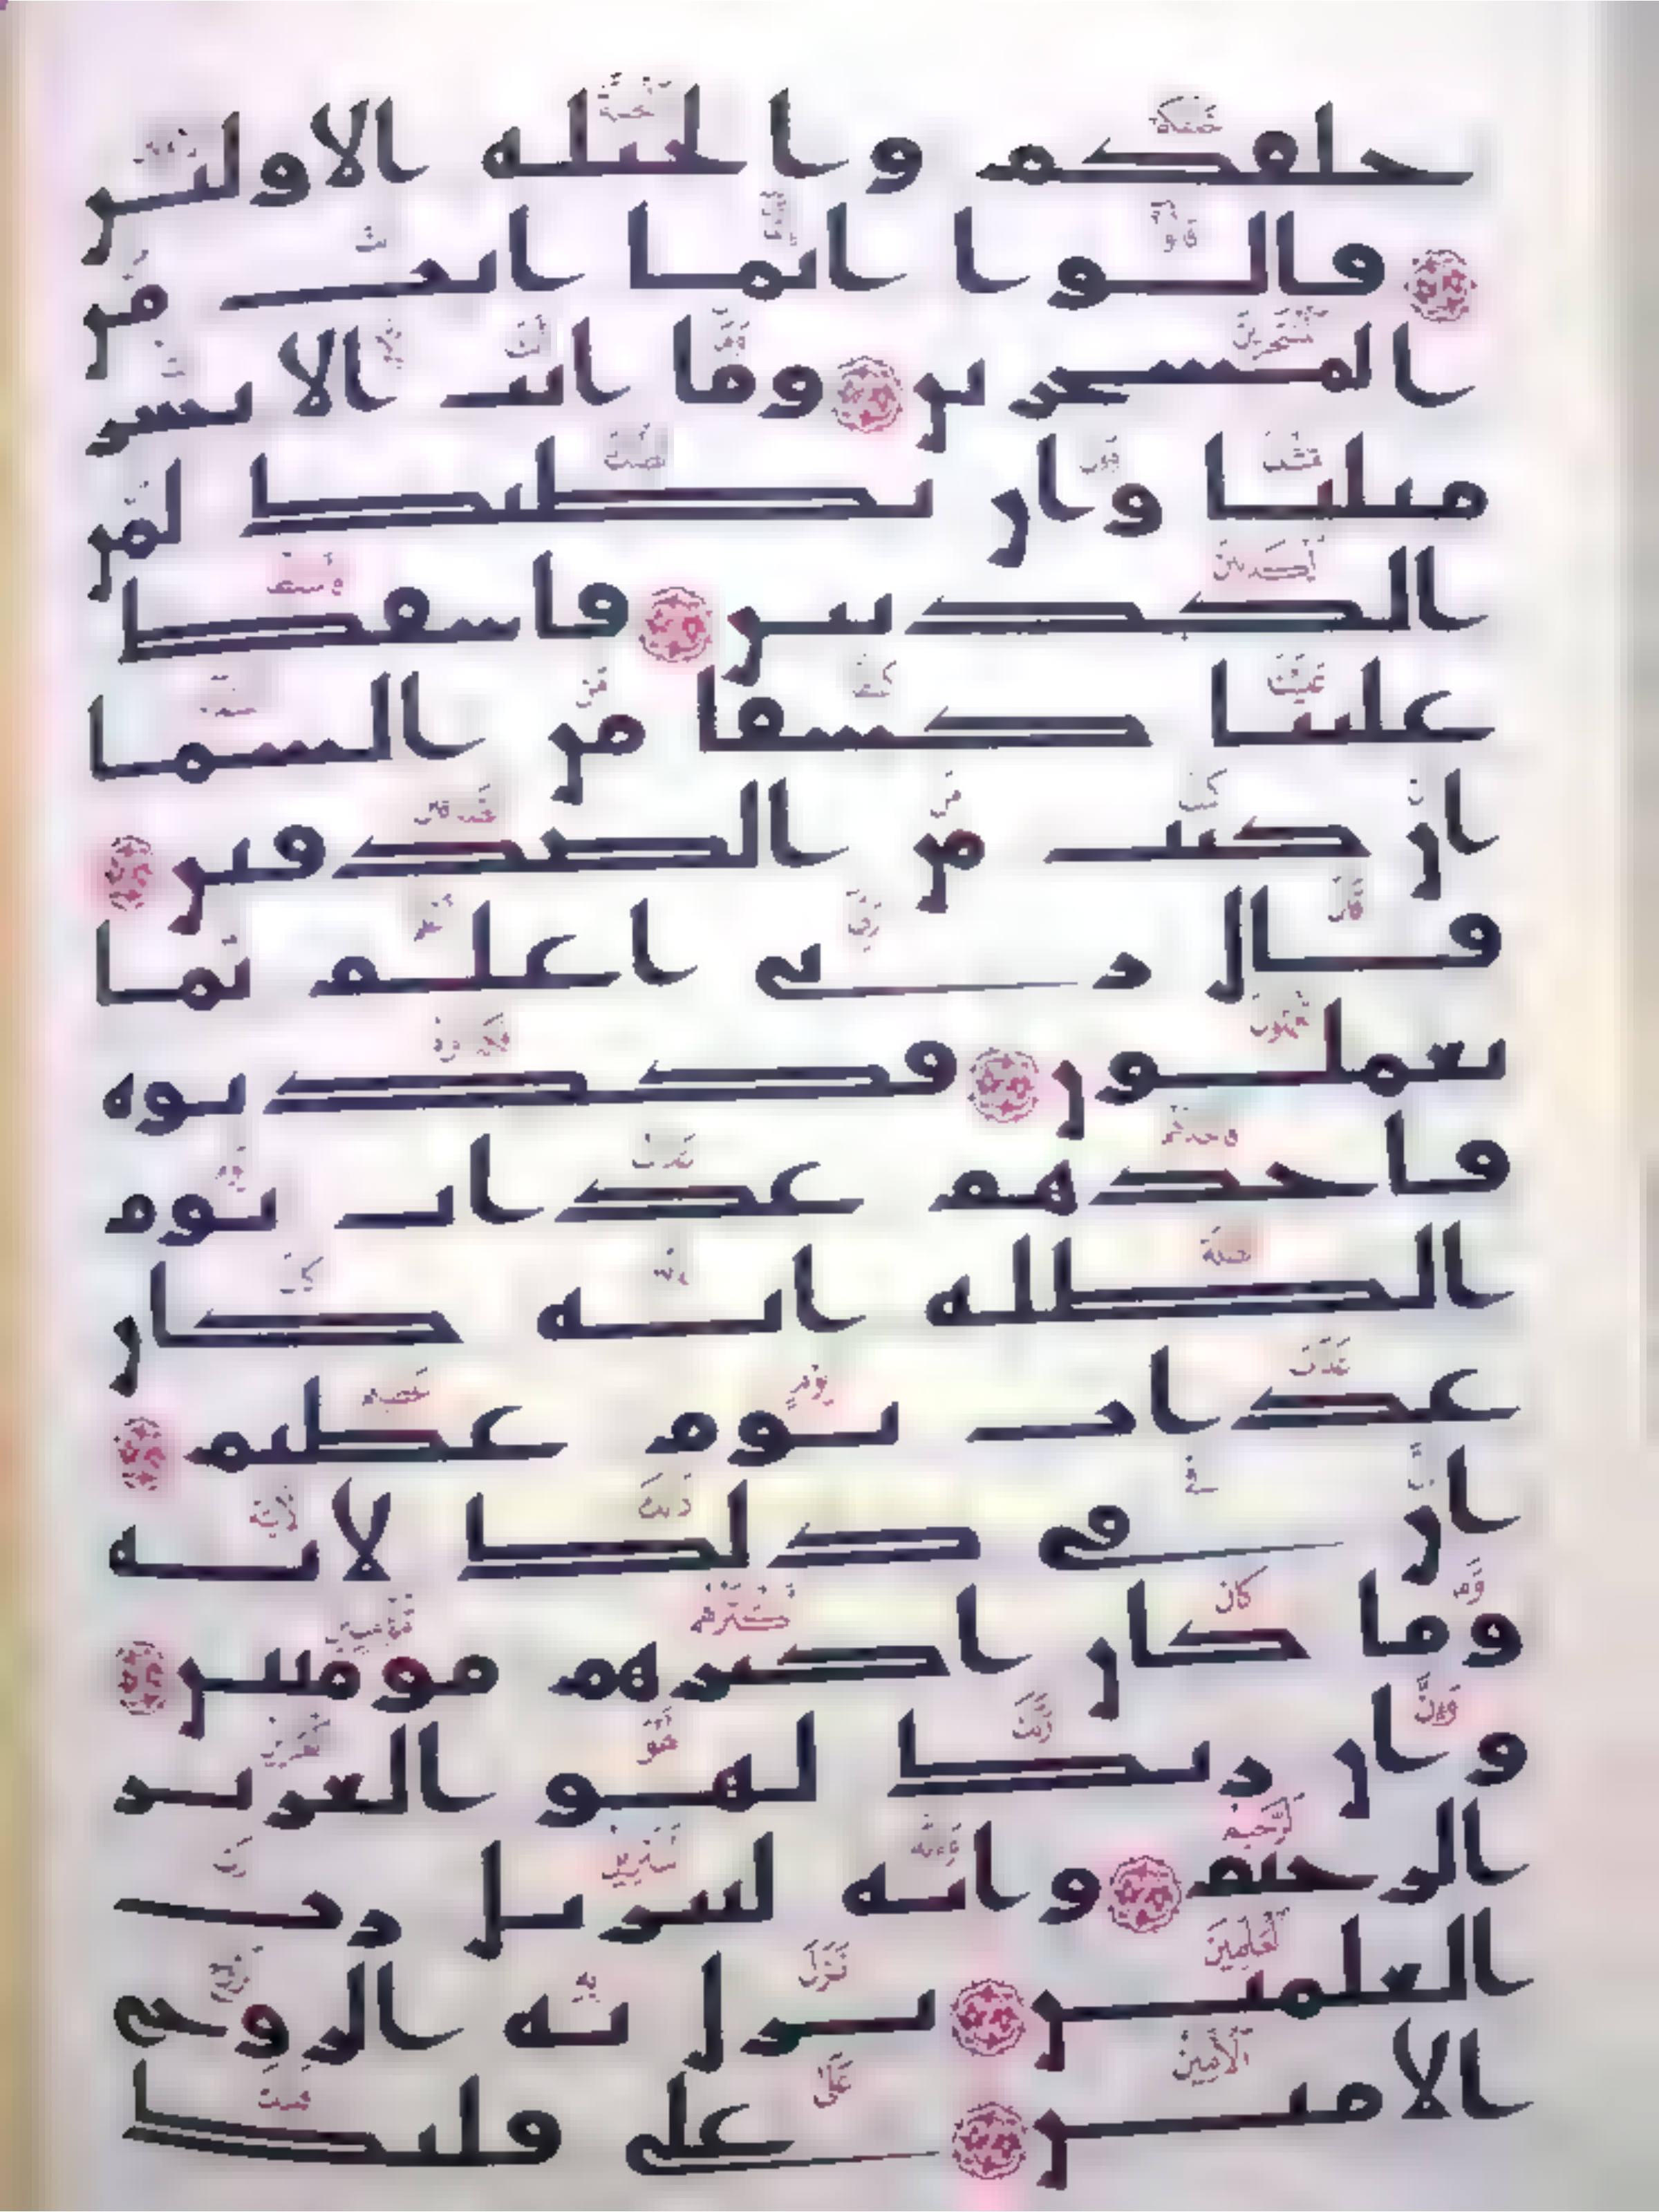 خلقكم والجبلة الاولين
قالوا انما انت من
المسحرين وما انت الا بشر
مثلنا وان نظنك لمن
الكذبين فاسقط
علينا كسفا من السما
ان كنت من الصدقين
قال ربي اعلم بما
تعملون فكذبوه
فاخذهم عذاب يوم
الظلة انه كان
عذاب يوم عظيم
ان في ذلك لاية
وما كان اكثرهم مومنين
وان ربك لهو العزيز
الرحيم وانه لتنزيل رب
العلمين نزل به الروح
الامين على قلبك